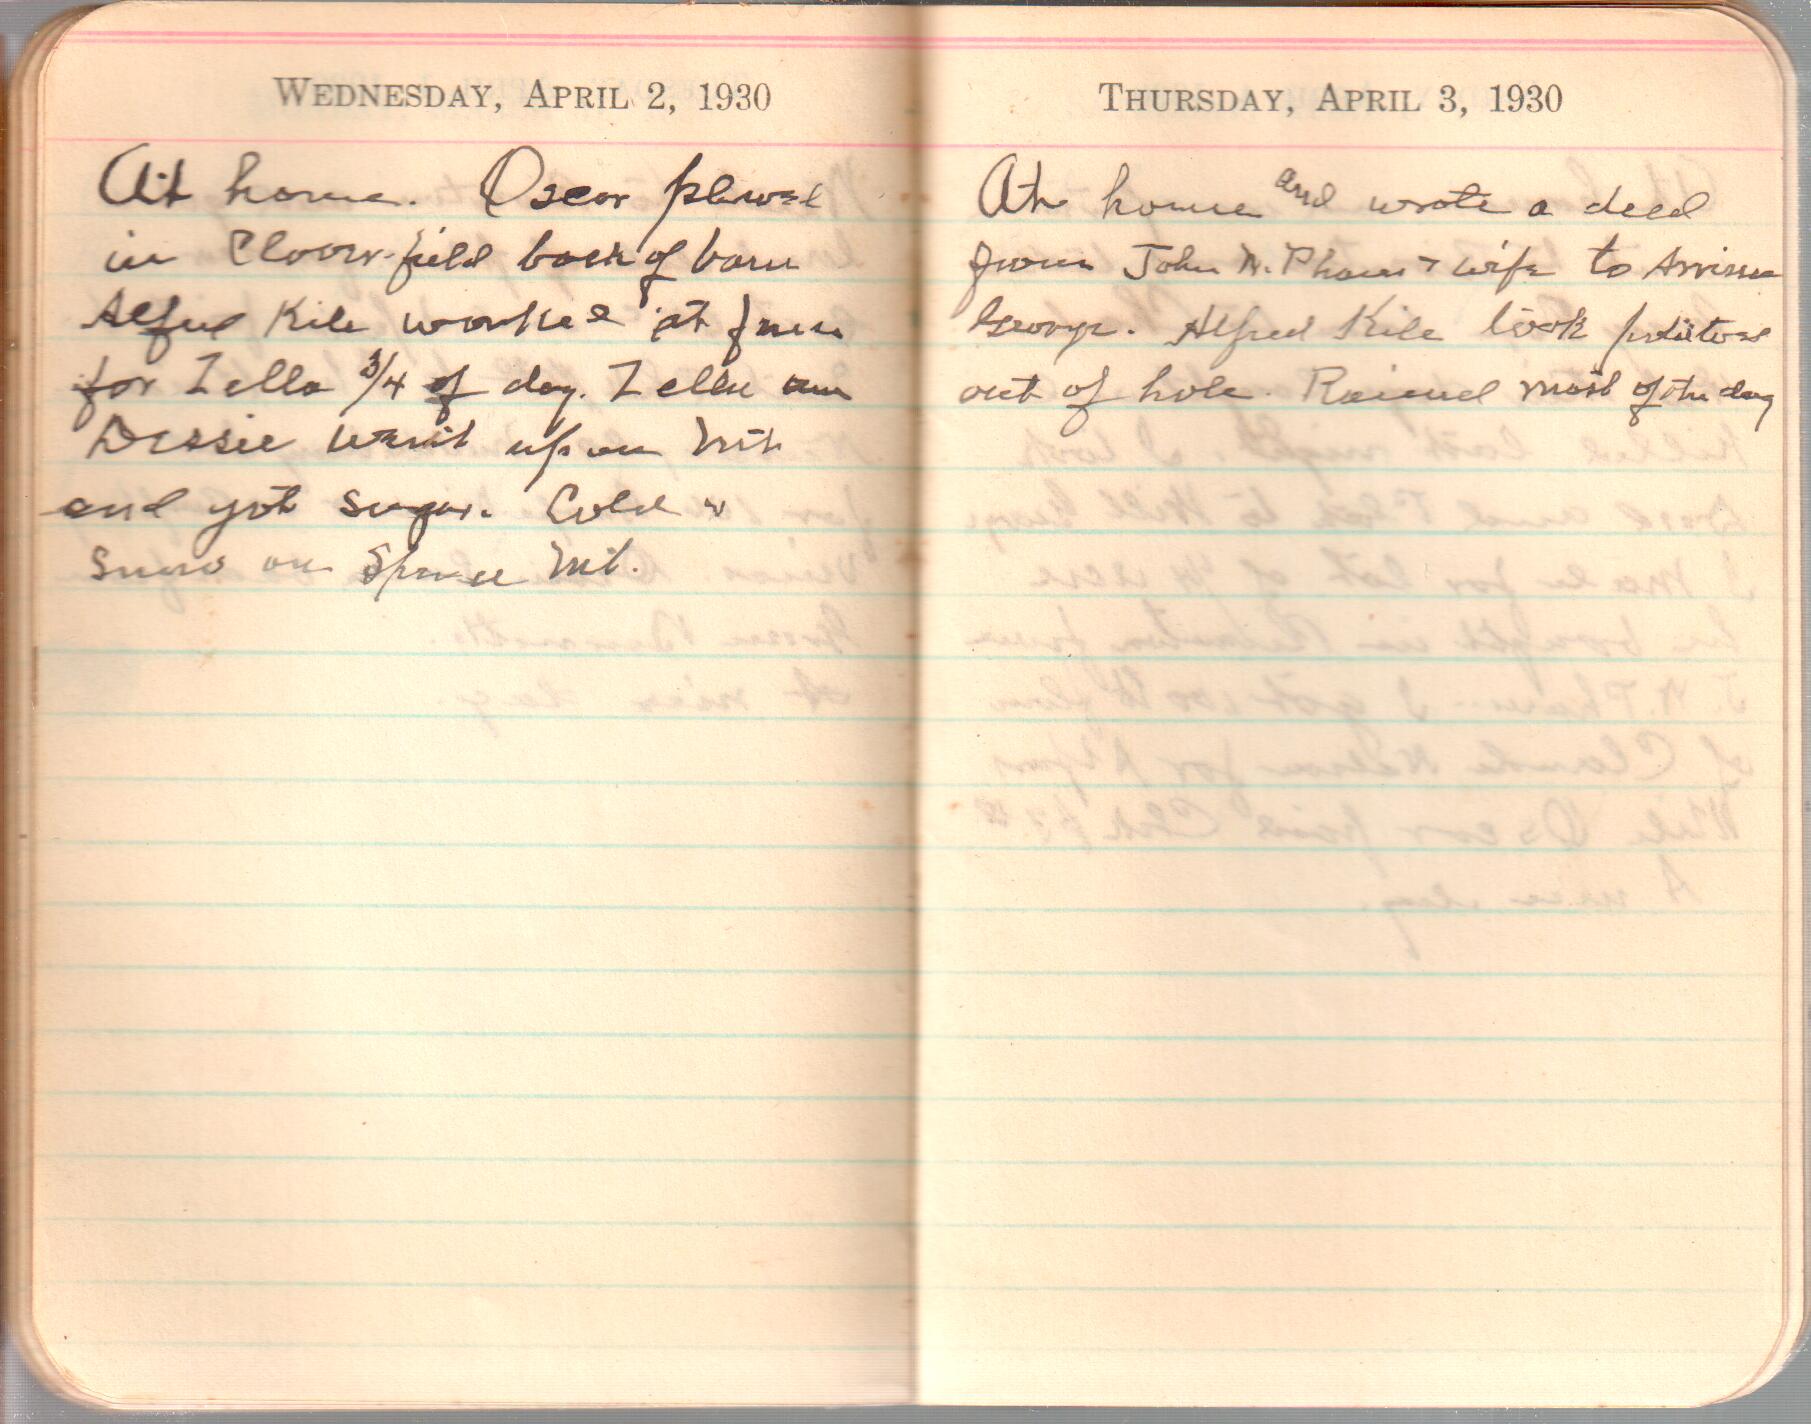 WEDNESDAY, APRIL 2, 1930
At home. Oscar plowed
in Clover-field back of barn
Alfred Kile worked at
for Zella 3/4 of day. Zella an
Dessie went up on Mt
and got sugar. Cold &
Snow on Spruce Mt.
THURSDAY, APRIL 3, 1930
At home and wrote a deed
from John W. Phares & wife to
George. Alfred Kile took potatoes
out of hole. Rained most of the day